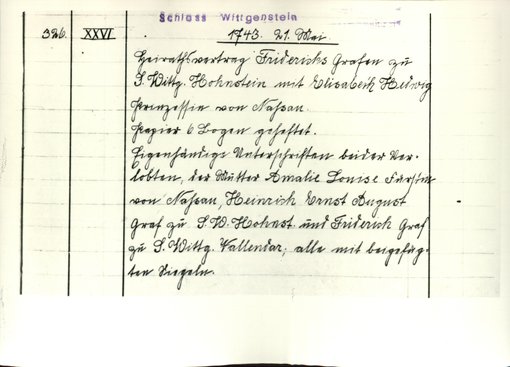 Schloss Wittgenstein
326. XXVI 1743. 21. Mai
Heirathsvertrag Friderichs Grafen zu
S. Wittg. Hohnstein mit Elisabeth Hedwig
Prinzessin von Nassau.
Papier 6 Bogen geheftet.
Eigenhändige Unterschriften beider Ver-
lobten, der Mutter Amalie Louise Fürstin
von Nassau, Heinrich Ernst August
Graf zu S. W. Hohnst. und Friderich Graf
zu S. Wittg. Vallendar; alle mit beigefüg-
ten Siegeln.